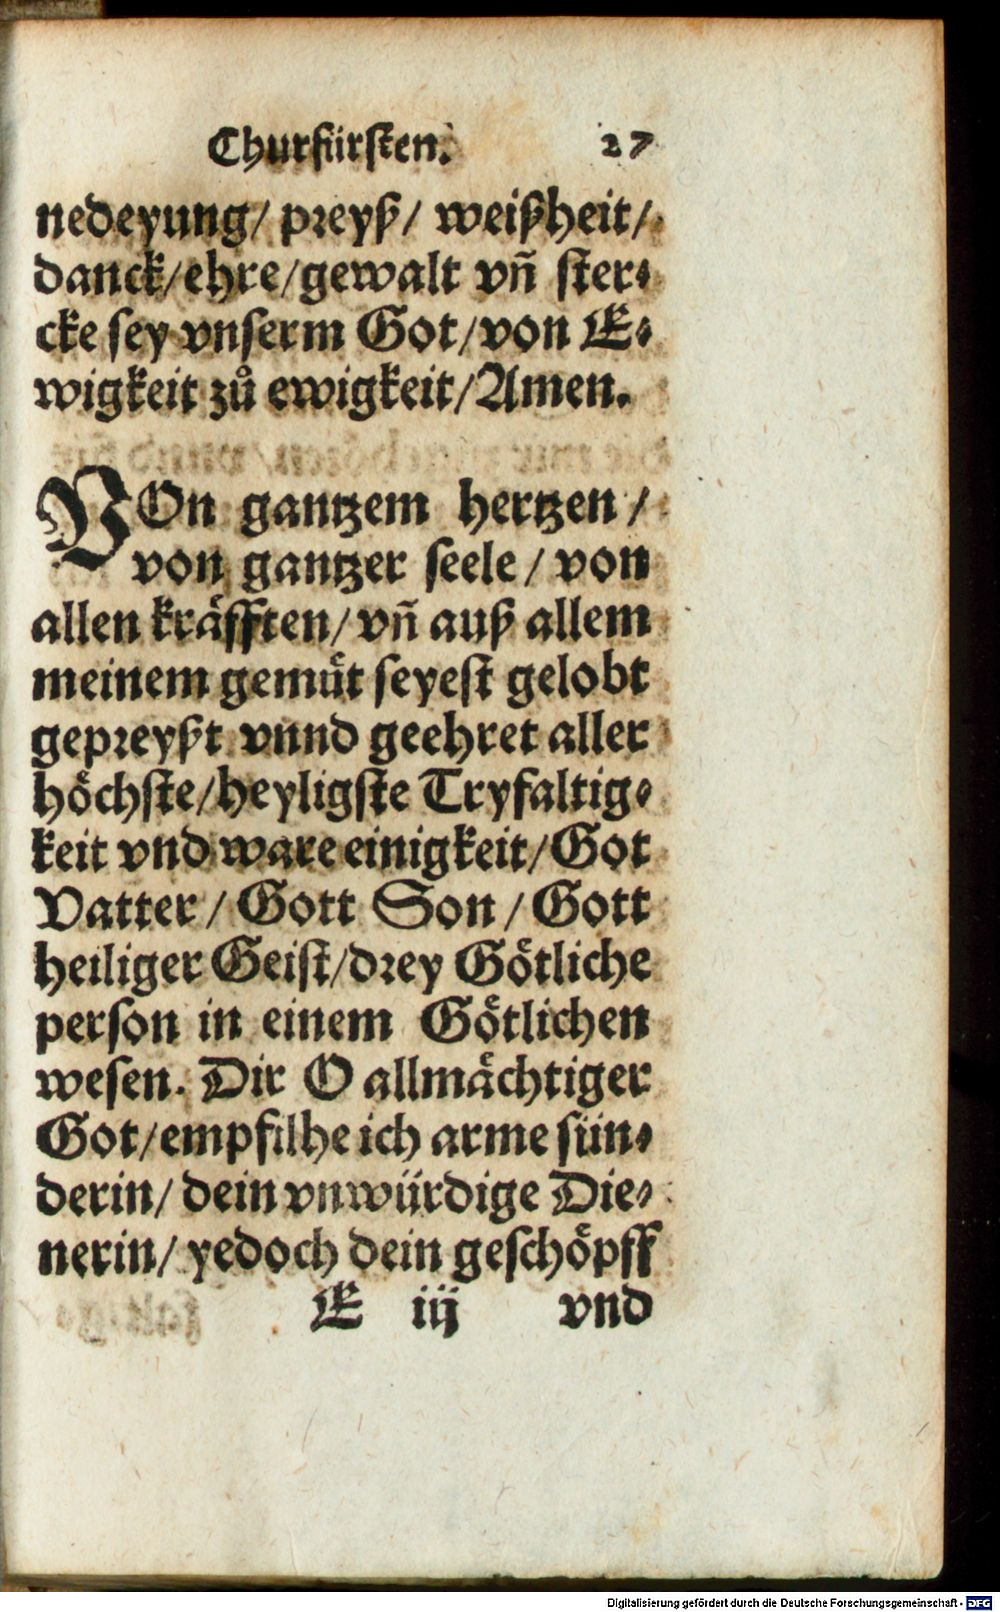 Churfürsten. 27
nedeyung/ preyß/ weißheit/
danck/ehre/gewalt vñ ster⸗
cke sey vnserm Got/von E⸗
wigkeit zů ewigkeit/Amen.
VOn gantzem hertzen/
von gantzer seele/ von
allen kräfften/ vñ auß allem
meinem gemüt seyest gelobt
gepreyßt vnnd geehret aller
höchste/heyligste Tryfaltig⸗
keit vnd ware einigkeit/Got
Vatter/ Gott Son/ Gott
heiliger Geist/drey Götliche
person in einem Götlichen
wesen. Dir O allmächtiger
Got/empfilhe ich arme sün⸗
derin/ dein vnwürdige Die⸗
nerin/ yedoch dein geschöpff
E iij vnd
Digitalisierung gefördert durch die Deutsche Forschungsgemeinschaft - DFG